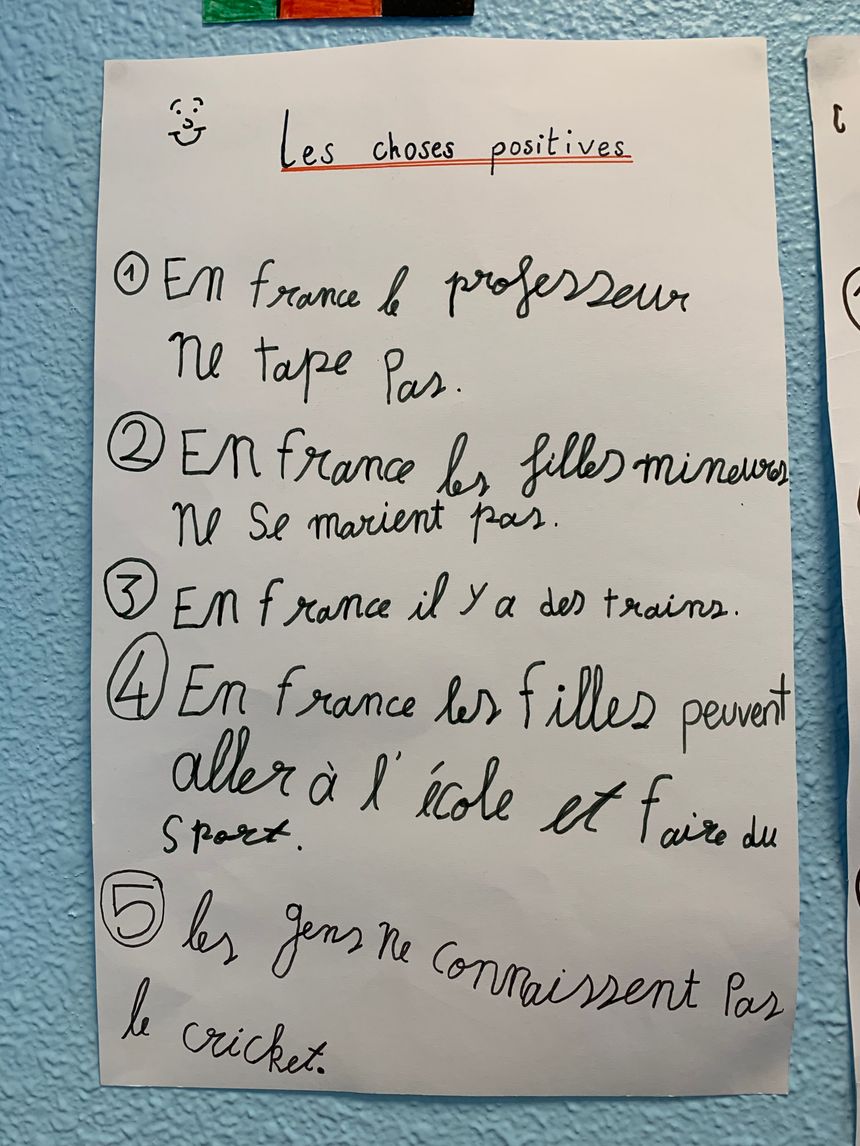 Les choses positives
1 En france le professeur
ne tape Pas.
2 En france les filles mineurs
ne se marient pas.
3 En france il y a des trains.
4 En france les filles peuvent
aller à l'école et faire du
sport.
5 les gens ne connaissent Pas
le cricket.